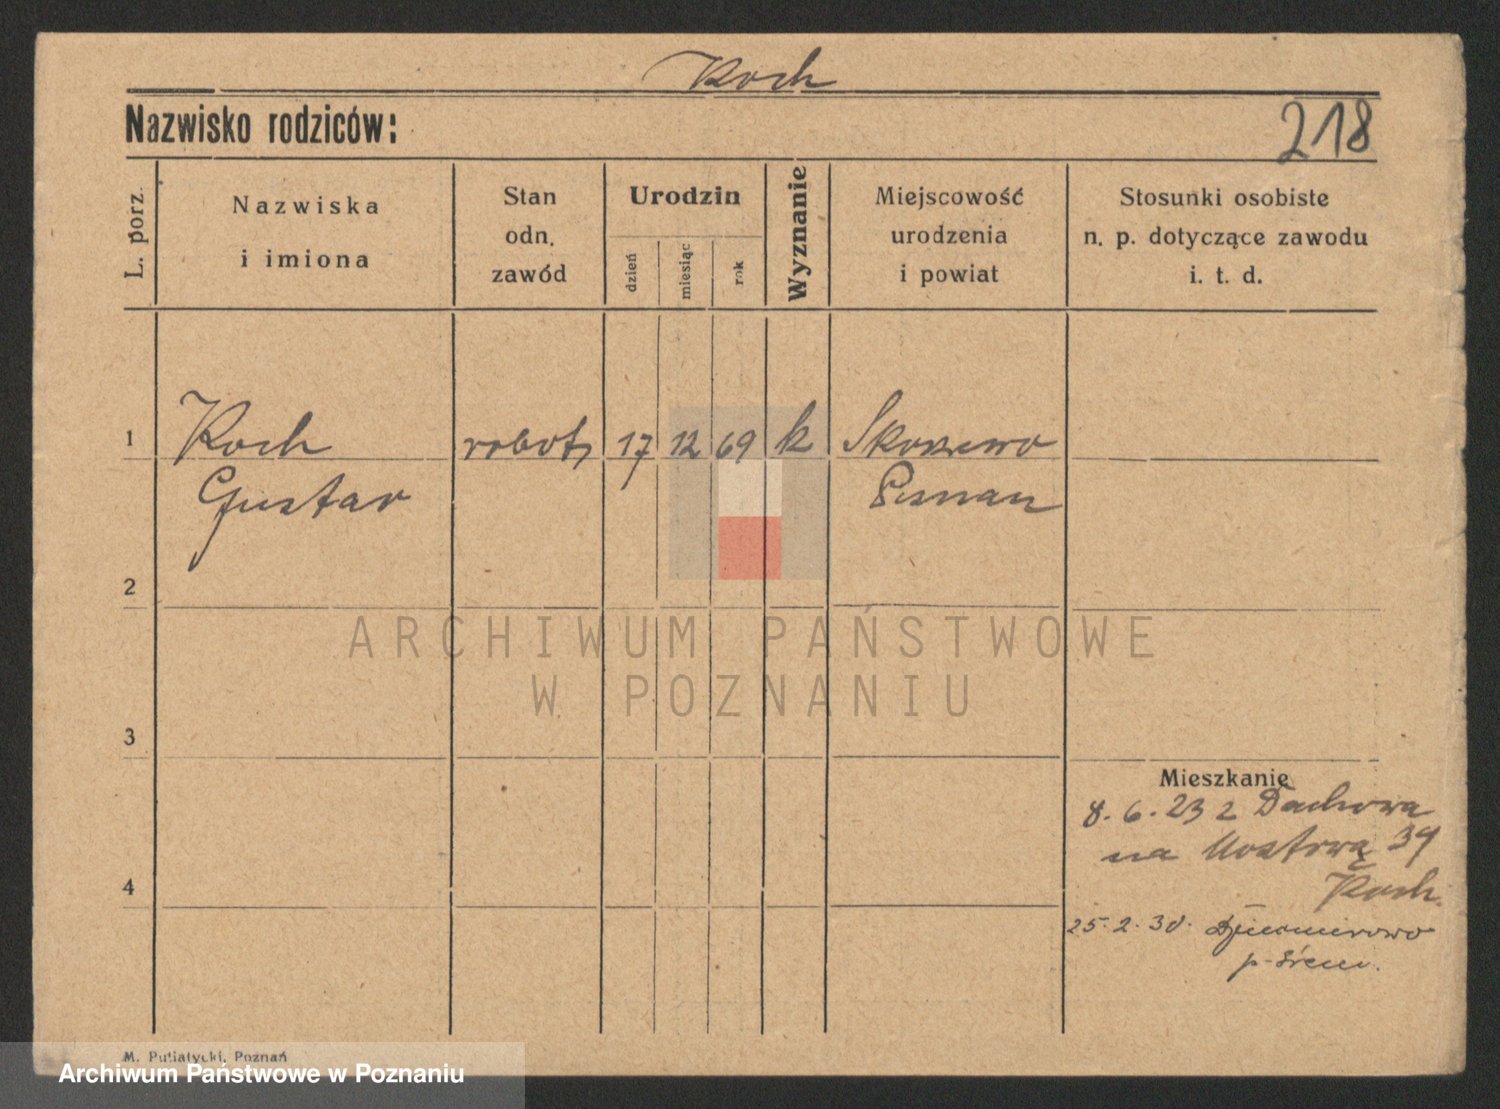 Koch
Nazwisko rodziców:
218
L. porz.
Nazwiska
i imiona
Stan
odn.
zawód
Urodzin
dzień
miesiąc
rok
Wyznanie
Miejscowość
urodzenia
i powiat
Stosunki osobiste
n. p. dotyczące zawodu
i. t. d.
1
Koch robotn 17 12 69 k
Gustav Posnan
2
ARCHIWUM PAŃSTWOWE
W POZNANIU
3
Mieszkanie
8. 6. 23 z Dachowa
na 39
4
Koch.
25. 2. 30.
p. Śrem.
M. Putiatycki, Poznań
Archiwum Państwowe w Poznaniu